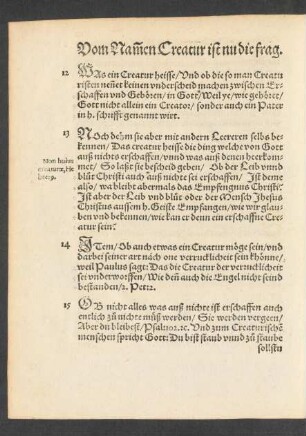 Vom Nam̃en Creatur ist nu die frag.
12 WAs ein Creatur heisse/ Vnd ob die so man Creatu
risten neñet keinen vnderscheid machen zwischen Er-
schaffen vnd Gehören/ in Gott/ Weil ye/ wie gehört/
Gott nicht allein ein Creator/ sonder auch ein Pater
in h. schrifft genannt wirt.
13 NOch dem sie aber mit andern Leereren selbs be-
kennen/ Das creatur heisse die ding welche von Gott
auß nichts erschaffen/ vnnd was auß denen herkom-
met/ So laßt sie bescheid geben/ Ob der Leib vnnd
blůt Christi auch auß nichts sei erschaffen/ Ist deme
also/ wa bleibt abermals das Empfengnus Christi?
Ist aber der Leib vnd blůt oder der Mensch Jhesus
Christus aussem h. Geiste Empfangen/ wie wir glau-
ben vnd bekennen/ wie kan er denn ein erschaffne Cre-
atur sein?
14 ITem/ Ob auch etwas ein Creatur möge sein/ vnd
darbei seiner art nach one verrucklicheit sein khönne/
weil Paulus sagt: Das die Creatur der verrucklicheit
sei vnderworffen/ Wie deñ auch die Engel nicht seind
bestanden/ 2. Petr 2.
15 OB nicht alles was auß nichte ist erschaffen auch
entlich zů nichte můß werden/ Sie werden vergeen/
Aber du bleibest/ Psal: 102. ꝛc. Vnd zum Creaturischẽ
menschen spricht Gott: Du bist staub vnnd zů staube
solltu